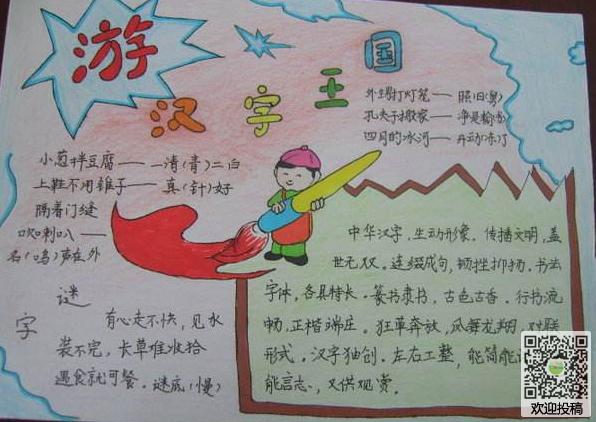 游
汉字王国
外甥打灯笼——照旧(舅)
孔夫子搬家——净是输(书)
四月的冰河——开动(冻)了
小葱拌豆腐——一清(青)二白
上鞋不用锥子——真(针)好
隔着门缝
吹喇叭——
名(鸣)声在外
字谜
有心走不快,见水
装不完,长草难收拾
遇食就可餐。谜底(慢)
中华汉字,生动形象。传播文明,盖
世无双。连缀成句,顿挫抑扬。书法
字体,各具特长。篆书隶书,古色古香。行书流
畅,正楷端庄。狂草奔放,凤舞龙翔。对联
形式。汉字独创。左右工整,能简能
能言志、又供观赏。
欢迎投稿